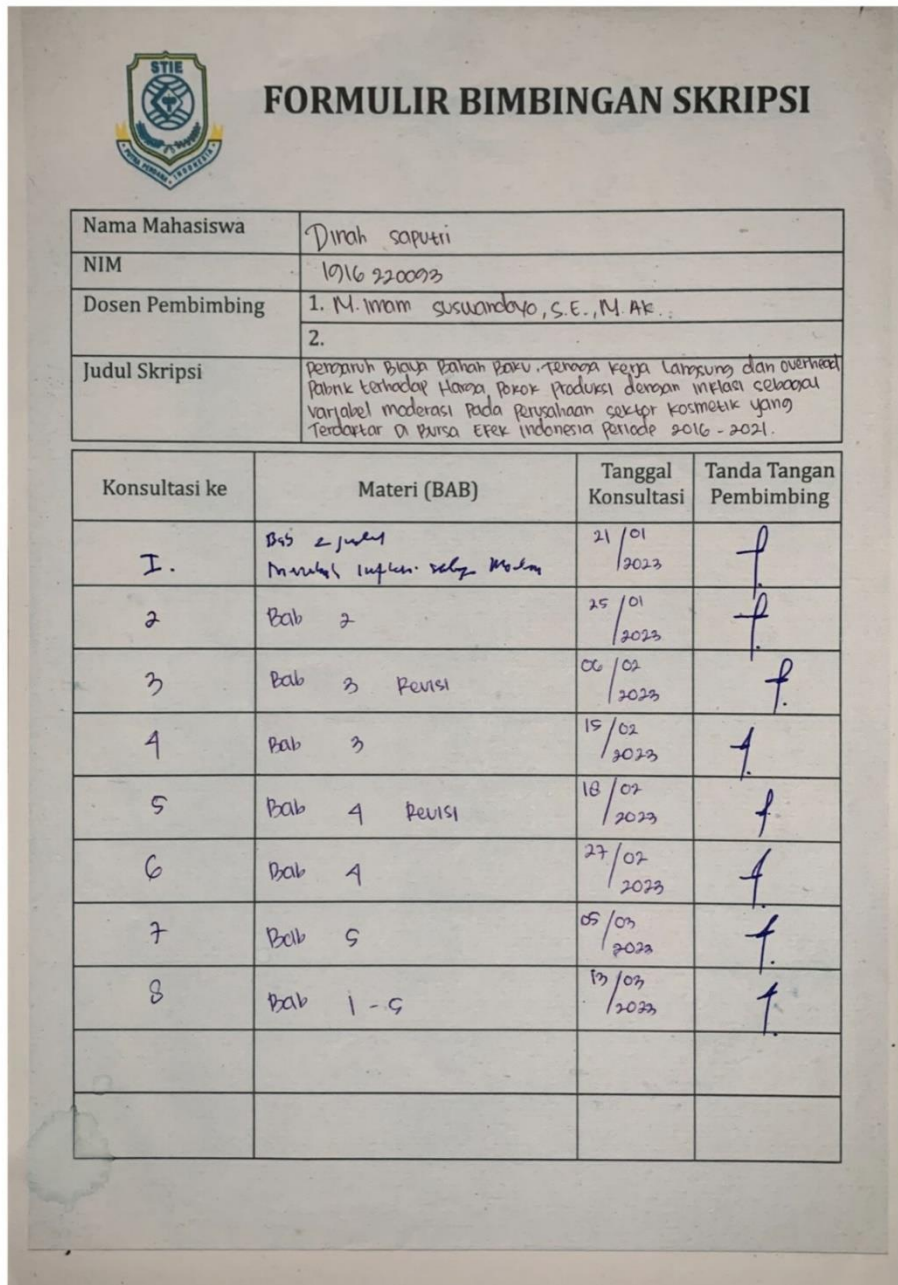 STIE
PUTRA PERDANA INDONESIA
FORMULIR BIMBINGAN SKRIPSI
Nama Mahasiswa Dinah saputri
NIM 1916220093
Dosen Pembimbing 1. M. Imam suswandoyo, S.E., M.Ak.
2.
Judul Skripsi Pengaruh Biaya Bahan Baku, Tenaga Kerja Langsung dan overhead
Pabrik terhadap Harga Pokok Produksi dengan inflasi sebagai
variabel moderasi Pada Perusahaan sektor kosmetik yang
Terdaftar Di Bursa Efek indonesia Periode 2016 - 2021.
Konsultasi ke Materi (BAB) Tanggal Konsultasi Tanda Tangan Pembimbing
I. Bab 2 21/01 2023
2 Bab 2 25/01 2023
3 Bab 3 Revisi 06/02 2023
4 Bab 3 15/02 2023
5 Bab 4 Revisi 18/02 2023
6 Bab 4 27/02 2023
7 Bab 5 05/03 2023
8 Bab 1 - 5 13/03 2023